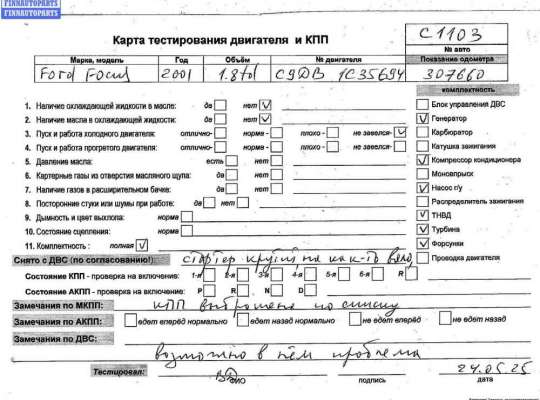 FINNAUTOPARTS
FINNAUTOPARTS
Карта тестирования двигателя и КПП
C1103
№ авто
Марка, модель Год Объём № двигателя Показание одометра
Ford Focus 2001 1.8td C9DB 1C35694 307660
комплектность
1. Наличие охлаждающей жидкости в масле: да нет
2. Наличие масла в охлаждающей жидкости: да нет
3. Пуск и работа холодного двигателя: отлично- норма - плохо - не завелся-
4. Пуск и работа прогретого двигателя: отлично- норма - плохо - не завелся-
5. Давление масла: есть нет
6. Картерные газы из отверстия масляного щупа: да нет
7. Наличие газов в расширительном бачке: да нет
8. Посторонние стуки или шумы при работе: да нет
9. Дымность и цвет выхлопа: норма
10. Состояние сцепления: норма
11. Комплектность : полная
Блок управления ДВС
Генератор
Карбюратор
Катушка зажигания
Компрессор кондиционера
Моновпрыск
Насос г/у
Распределитель зажигания
ТНВД
Турбина
Форсунки
Проводка двигателя
Снято с ДВС (по согласованию!) стартер крутил, но как-то вяло
Состояние КПП - проверка на включение: 1-я 2-я 3-я 4-я 5-я 6-я R
Состояние АКПП - проверка на включение: P R N D
Замечания по МКПП: КПП выброшена по списку
Замечания по АКПП: едет вперёд нормально едет назад нормально не едет вперёд не едет назад
Замечания по ДВС:
возможно в нём проблема
Тестировал: ФИО подпись дата
24.05.25